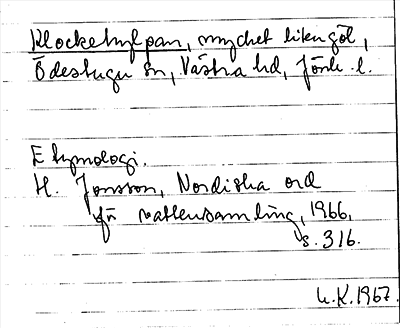 Klockehylpan, mycket liten göl,
Ödestugu sn, Västra hd, Jönk. l.
Etymologi.
H. Jonsson, Nordiska ord
för vattensamling, 1966,
s. 316.
L.K. 1967.